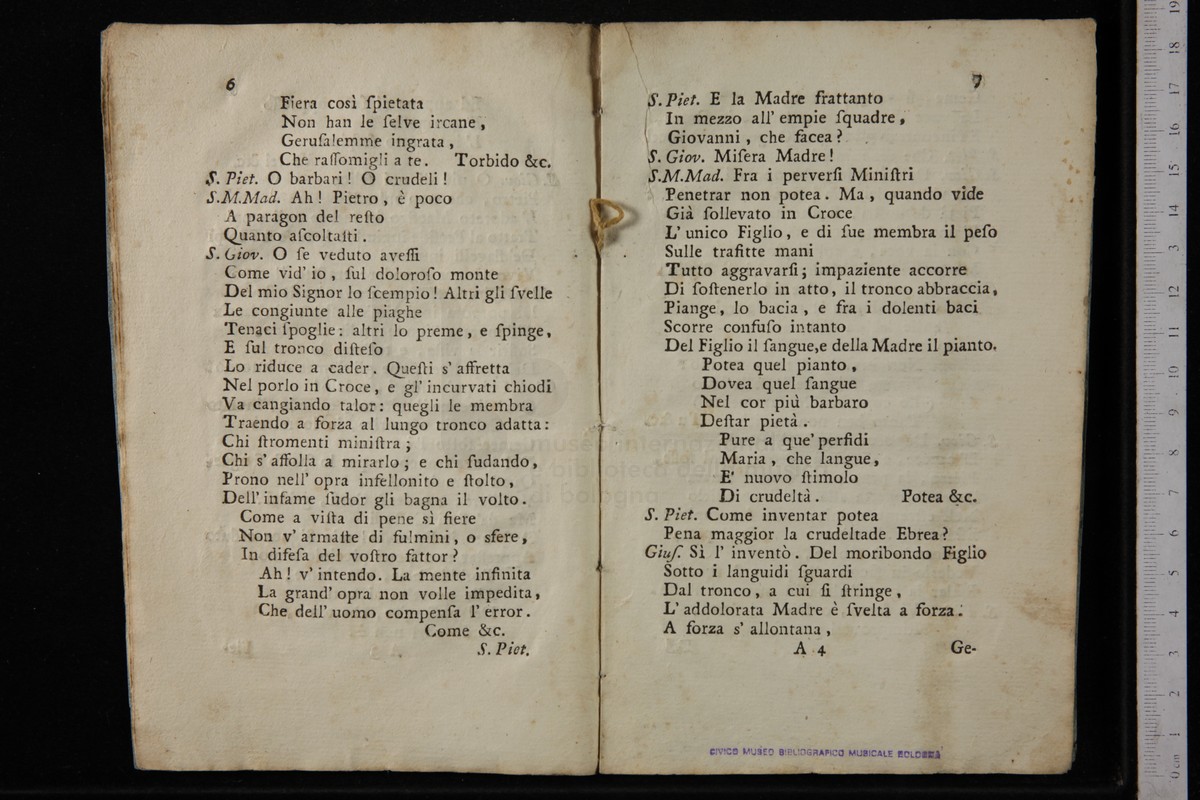 6
Fiera così ſpietata
Non han le ſelve ircane,
Geruſalemme ingrata,
Che raſſomigli a te. Torbido &c.
S. Piet. O barbari! O crudeli!
S.M.Mad. Ah! Pietro, è poco
A paragon del reſto
Quanto aſcoltaſti.
S. Giov. O ſe veduto aveſſi
Come vid' io, ſul doloroſo monte
Del mio Signor lo ſcempio! Altri gli ſvelle
Le congiunte alle piaghe
Tenaci ſpoglie: altri lo preme, e ſpinge,
E ſul tronco diſteſo
Lo riduce a cader. Queſti s' affretta
Nel porlo in Croce, e gl' incurvati chiodi
Va cangiando talor: quegli le membra
Traendo a forza al lungo tronco adatta:
Chi ſtromenti miniſtra;
Chi s' affolla a mirarlo; e chi ſudando,
Prono nell' opra infellonito e ſtolto,
Dell' infame ſudor gli bagna il volto.
Come a viſta di pene sì fiere
Non v' armaſte di fulmini, o sfere,
In difeſa del voſtro fattor?
Ah! v' intendo. La mente infinita
La grand' opra non volle impedita,
Che dell' uomo compenſa l' error.
Come &c.
S. Piet.
7
S. Piet. E la Madre frattanto
In mezzo all' empie ſquadre,
Giovanni, che facea?
S. Giov. Miſera Madre!
S.M.Mad. Fra i perverſi Miniſtri
Penetrar non potea. Ma, quando vide
Già ſollevato in Croce
L' unico Figlio, e di ſue membra il peſo
Sulle trafitte mani
Tutto aggravarſi; impaziente accorre
Di ſoſtenerlo in atto, il tronco abbraccia,
Piange, lo bacia, e fra i dolenti baci
Scorre confuſo intanto
Del Figlio il ſangue, e della Madre il pianto.
Potea quel pianto,
Dovea quel ſangue
Nel cor più barbaro
Deſtar pietà.
Pure a que' perfidi
Maria, che langue,
E' nuovo ſtimolo
Di crudeltà. Potea &c.
S. Piet. Come inventar potea
Pena maggior la crudeltade Ebrea?
Giuſ. Sì l' inventò. Del moribondo Figlio
Sotto i languidi ſguardi
Dal tronco, a cui ſi ſtringe,
L' addolorata Madre è ſvelta a forza.
A forza s' allontana,
A 4 Ge-
CIVICO MUSEO BIBLIOGRAFICO MUSICALE BOLOGNA